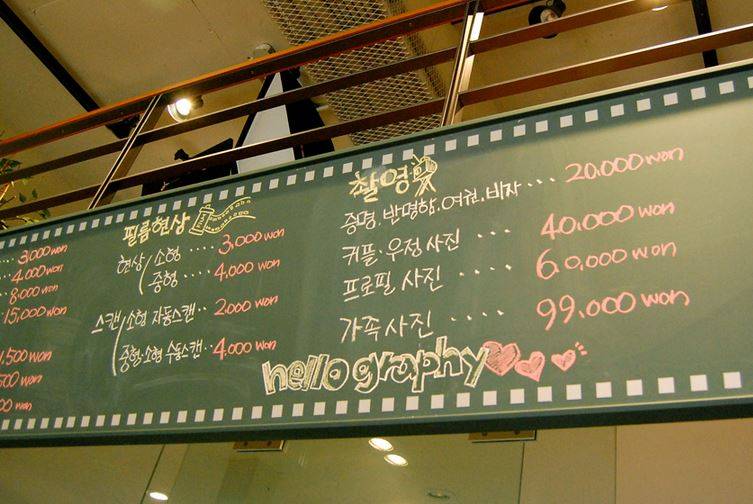 3,000 won
4,000 won
8,000 won
15,000 won
1,500 won
500 won
00 won
필름현상
현상 소형 .... 3,000 won
중형 .... 4,000 won
스캔 소형 자동스캔.. 2,000 won
중형·소형 수동스캔.. 4,000 won
촬영
증명.반명함.여권.비자 ... 20,000 won
커플·우정 사진 .... 40,000 won
프로필 사진 .... 60,000 won
가족사진 .... 99,000 won
hello graphy